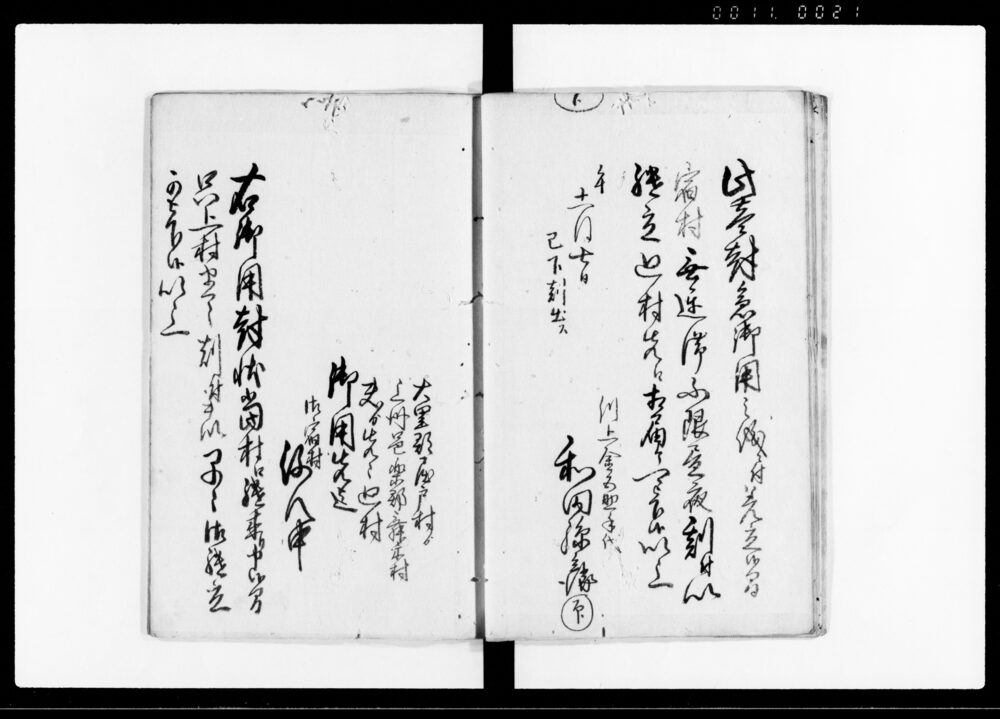 0011 0021
此壱封急御用之儀ニ付差立候間
宿村無遅滞不限昼夜刻付以
継立廻村先江相届可申候以上
川上金吾助手代
和田孫
印
午
十一月七日
巳下刻出ス
大里郡屋戸村ゟ
上州邑楽郡舞木村
夫ゟ先々廻村
御用先迄
右宿村
役人中
右御用封状当村江継来り申候間
只上村まて刻付を以早々御継立
可被下候以上